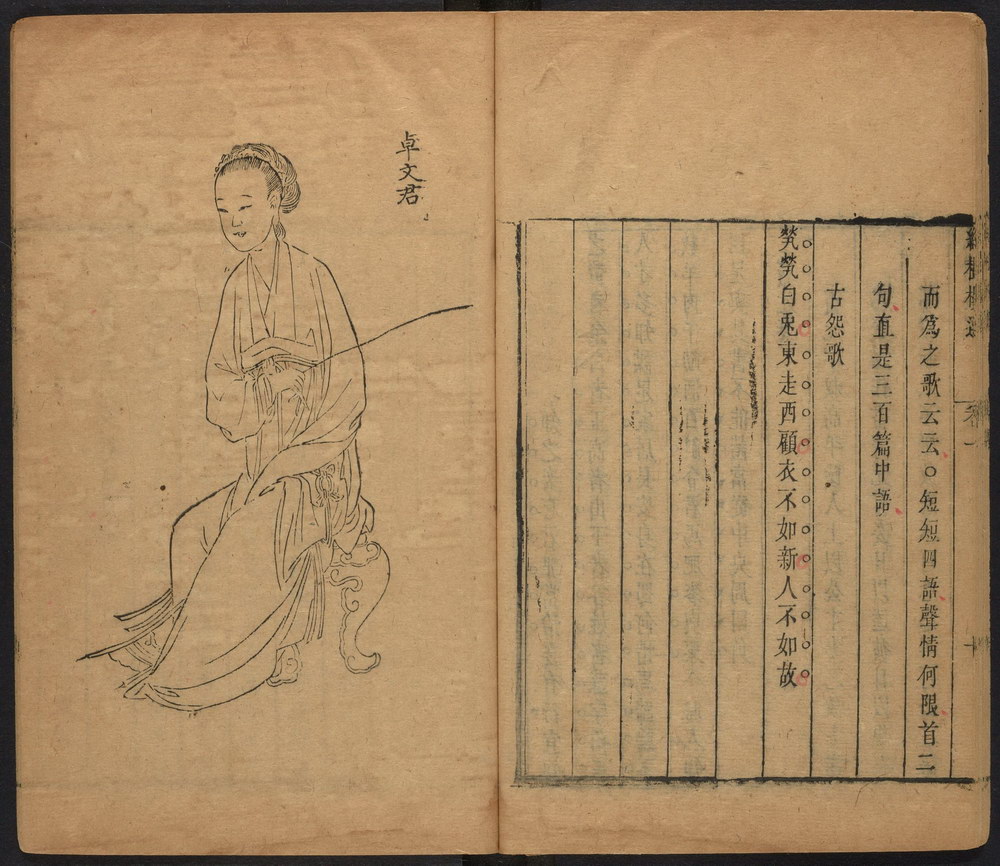 而爲之歌云云○短短四語聲情何限首二
句直是三百篇中語
古怨歌
煢煢白兎東走西顧衣不如新人不如故
卷一
十
卓文君